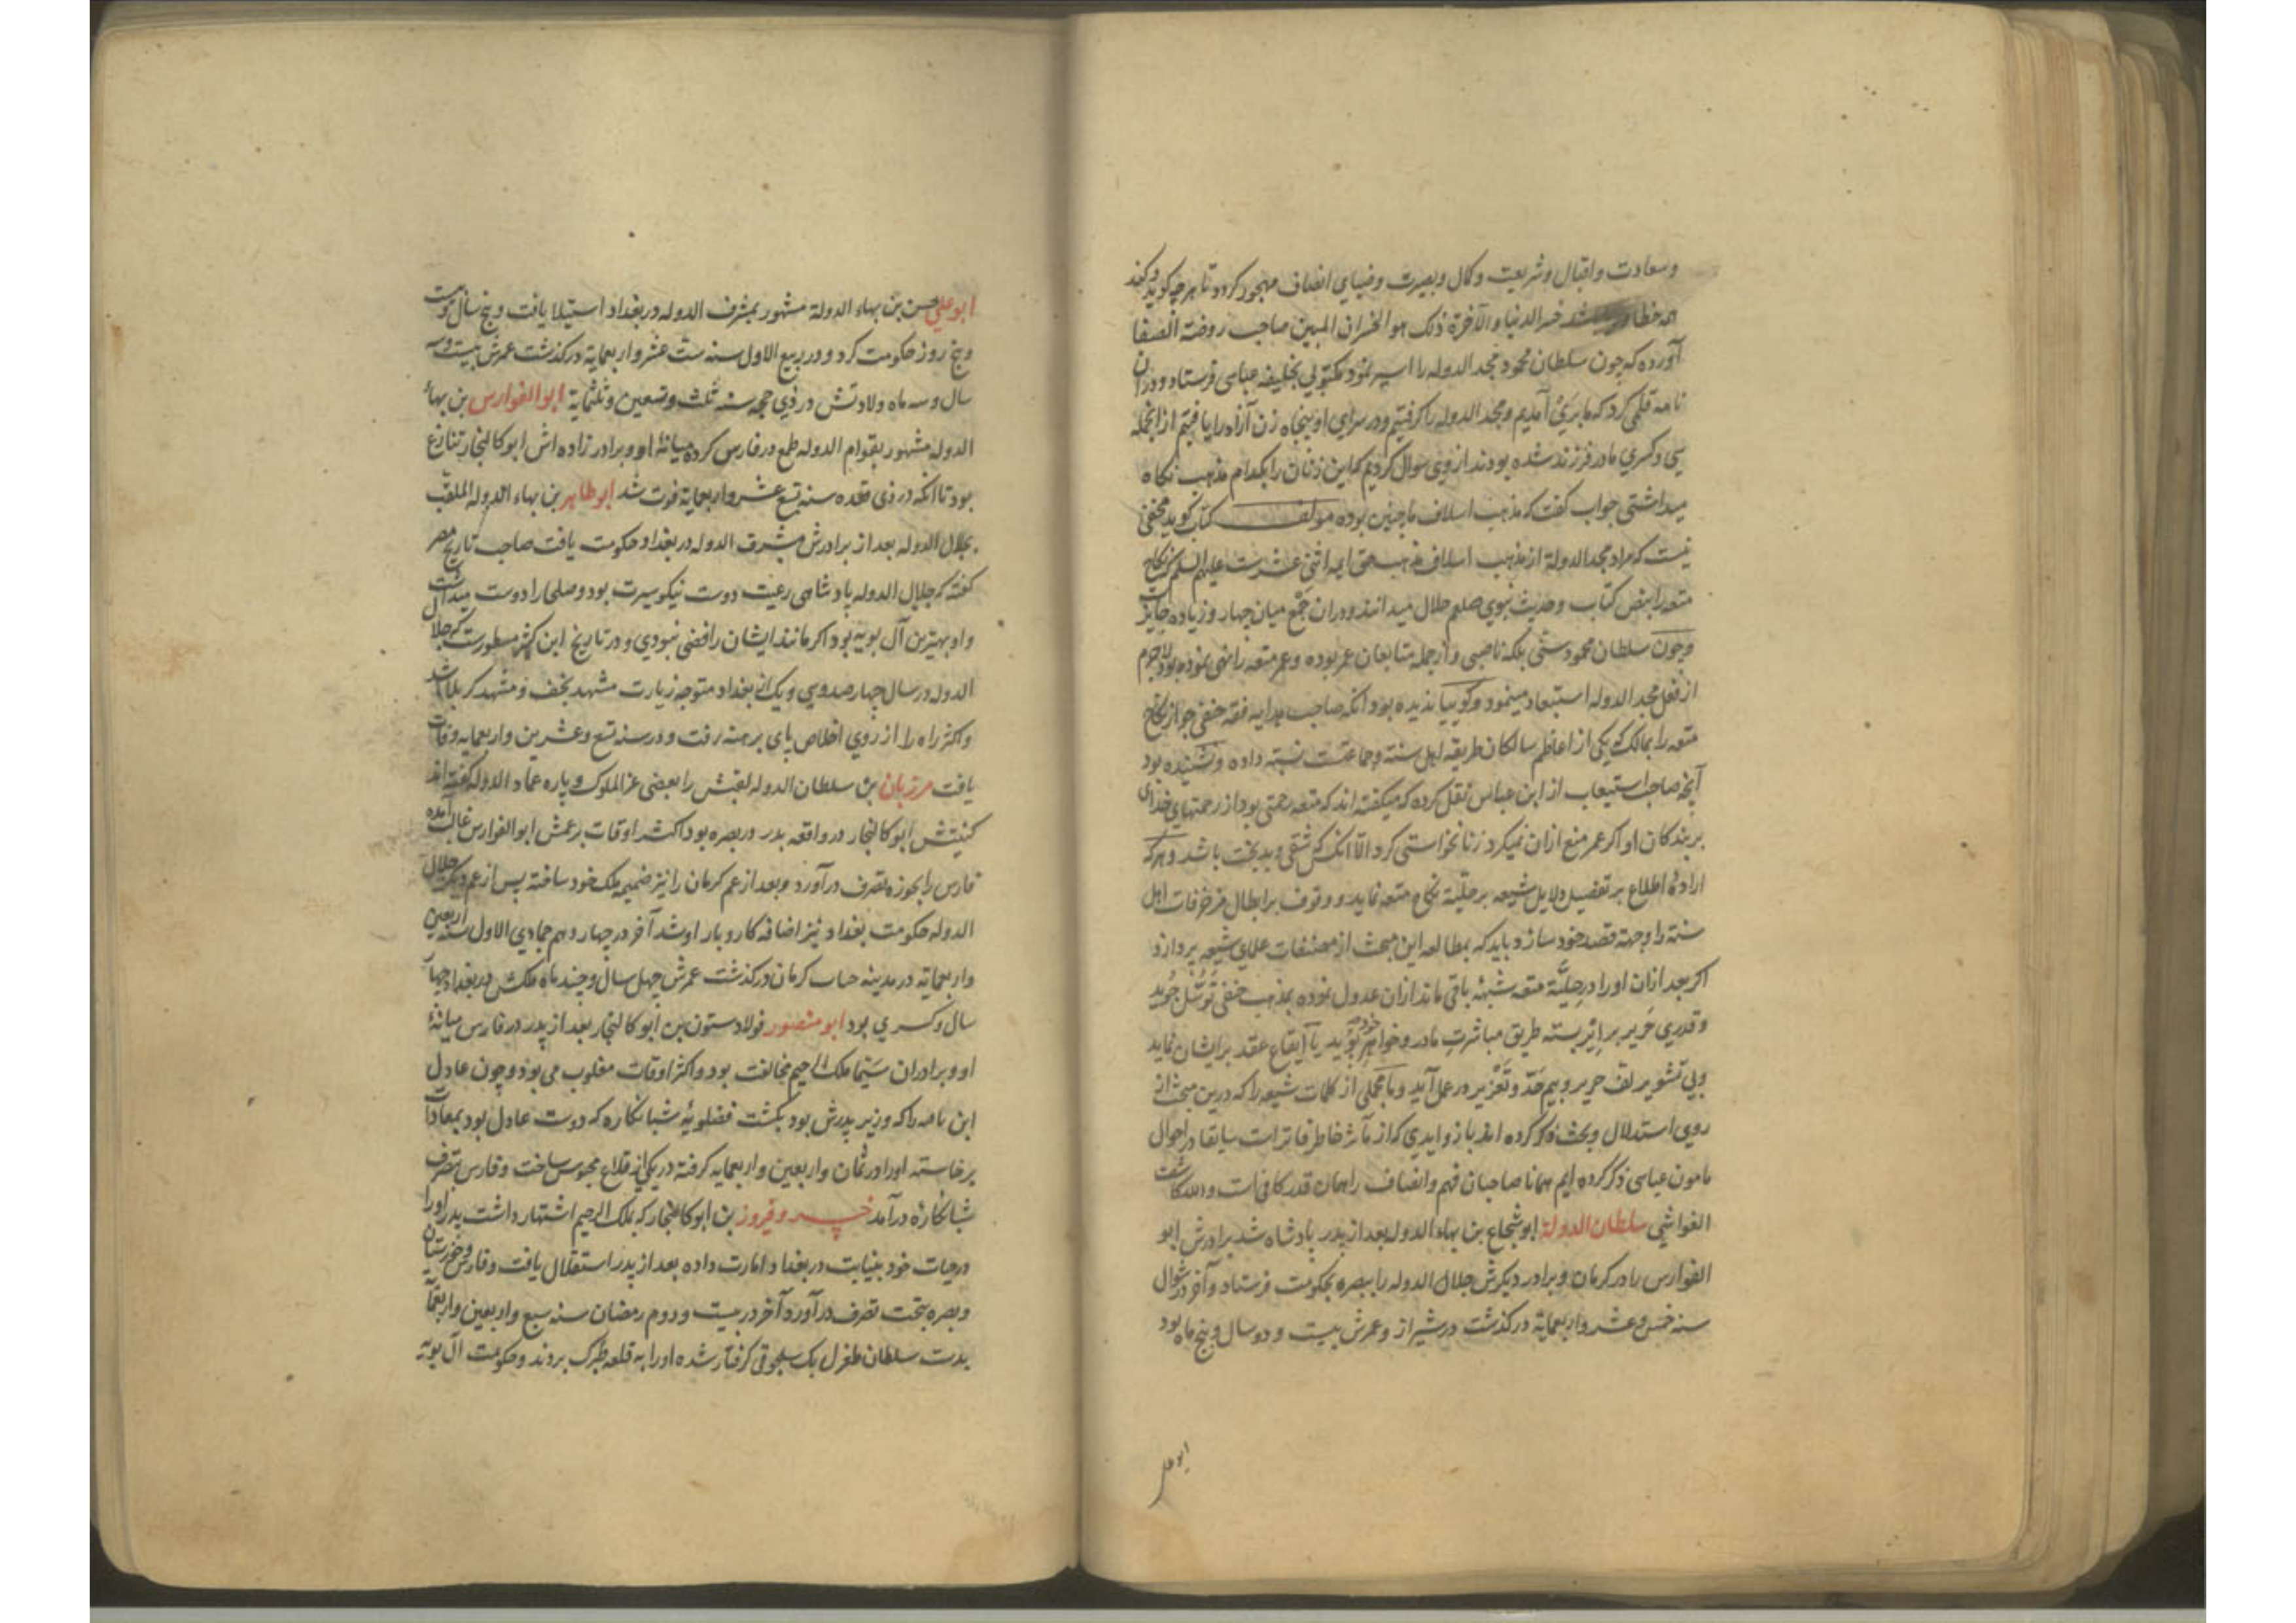 وسعادت واقبال وشریعت وکمال وبصیرت وضیای انصاف مهجور کردد تا هر چه کوید وکند
همه خطا باشد خسر الدنیا والآخرة ذلک هو الخسران المبین صاحب روضة الصفا
آورده که چون سلطان محمود مجد الدوله را اسیر نمود مکتوبی بخلیفه عباسی فرستاد ودران
نامه قلمی کرد که ما بری آمدیم ومجد الدوله را کرفتیم ودر سرای او پنجاه زن آزاد را یافتیم ازانجمله
سی وکسری مادر فرزند شده بودند از وی سوال کردیم که این زنان را بکدام مذهب نکاه
میداشتی جواب کفت که مذهب اسلاف ما چنین بوده مولف کتاب کوید مخفی
نیست که مراد مجد الدولة از مذهب اسلاف مذهب حق ایمه اثنی عشرست علیهم السلم که نکاح
متعه را بنص کتاب وحدیث نبوی صلعم حلال میدانند ودران جمع میان چهار وزیاده جایزست
وچون سلطان محمود سنی بلکه ناصبی واز جمله متابعان عمر بوده وعمر متعه را نهی نموده بود لاجرم
از فعل مجد الدوله استبعاد مینمود وکوییا ندیده بود آنکه صاحب هدایه فقه حنفی جواز نکاح
متعه را بمالک که یکی از اعاظم سالکان طریقه اهل سنة وجماعتست نسبة داده ونشنیده بود
آنچه صاحب استیعاب از ابن عباس نقل کرده که میکفته اند که متعه رحمتی بود از رحمتهای خدای
بر بندکان او اکر عمر منع ازان نمیکرد زنا نخواستی کرد الا آنکس که شقی وبدبخت باشد وهرکه
ارادهٔ اطلاع بر تفصیل دلایل شیعه بر حلیّة نکاح متعه نماید ووقوف بر ابطال مزخرفات اهل
سنة را وجهة قصد خود سازد باید که بمطالعه این مبحث از مصنفات علمای شیعه پردازد
اکر بعد ازان او را در حلیّة متعه شبهة باقی ماند ازان عدول نموده بمذهب حنفی توسّل جوید
وقدری حریر بر ایر بسته طریق مباشرت مادر وخواهر خود پوید یا ایقاع عقد بر ایشان نماید
وبی تشویر لف حریر وبیم حدّ وتعزیر در عمل آید وما مجملی از کلمات شیعه را که درین مبحث از
روی استدلال وبحث ذکر کرده اند با زوایدی که از مآثر خاطر فاترست سابقا در احوال
مامون عباسی ذکر کرده ایم همانا صاحبان فهم وانصاف را همان قدر کافی است والله کاشف
الغواشی سلطان الدولة ابو شجاع بن بهاء الدوله بعد از پدر پادشاه شد برادرش ابو
الفوارس را در کرمان وبرادر دیکرش جلال الدوله را ببصره بحکومت فرستاد وآخر در شوال
سنه خمس وعشر واربعمایة درکذشت در شیراز وعمرش بیست ودو سال وپنج ماه بود
ابو علی
ابو علی حسن بن بهاء الدولة مشهور بمشرف الدوله در بغداد استیلا یافت وپنج سال وبیست
وپنج روز حکومت کرد ودر ربیع الاول سنه ست عشر واربعمایة درکذشت عمرش بیست وسه
سال وسه ماه ولادتش در ذی حجه سنه ثلث وتسعین وثلثمایة ابو الفوارس بن بهاء
الدوله مشهور بقوام الدوله طمع در فارس کرده میانهٔ او وبرادر زاده اش ابو کالنجار تنازع
بود تا آنکه در ذی قعده سنه تسع عشر واربعمایة فوت شد ابو طاهر بن بهاء الدوله الملقب
بجلال الدوله بعد از برادرش مشرف الدوله در بغداد حکومت یافت صاحب تاریخ مصر
کفته که جلال الدوله پادشاهی رعیت دوست نیکو سیرت بود وصلحا را دوست میداشت
واو بهترین آل بویه بود اکر مانند ایشان رافضی نبودی ودر تاریخ ابن کثیر مسطورست که جلال
الدوله در سال چهارصد وسی ویک از بغداد متوجه زیارت مشهد نجف ومشهد کربلا شد
واکثر راه را از روی اخلاص پای برهنه رفت ودر سنه تسع وعشرین واربعمایه وفات
یافت مرزبان بن سلطان الدوله لقبش را بعضی عز الملوک وپاره عماد الدوله کفته اند
کنیتش ابو کالنجار در واقعه پدر در بصره بود اکثر اوقات بر عمش ابو الفوارس غالب آمده
فارس را بحوزه تصرف درآورد وبعد از عم کرمان را نیز ضمیمه ملک خود ساخته پس از عم دیکر جلال
الدوله حکومت بغداد نیز اضافه کار وبار او شد آخر در چهاردهم جمادی الاول سنه اربعین
واربعمایه در مدینه حساب کرمان درکذشت عمرش چهل سال وچند ماه ملکش در بغداد چهار
سال وکسری بود ابو منصور فولاد ستون بن ابو کالنجار بعد از پدر در فارس میانهٔ
او وبرادران سیّما ملک الرحیم مخالفت بود واکثر اوقات مغلوب می بود وچون عادل
ابن نامه را که وزیر پدرش بود بکشت فضلویه شبانکاره که دوست عادل بود بمعادات
برخاسته او را در ثمان واربعین واربعمایه کرفته در یکی از قلاع محبوس ساخت وفارس بتصرف
شبانکاره درآمد خسرو فیروز بن ابو کالنجار که بملک الرحیم اشتهار داشت پدر او را
در حیات خود بنیابت در بغداد امارت داده بعد از پدر استقلال یافت وفارس وخوزستان
وبصره بتحت تصرف درآورد آخر در بیست ودوم رمضان سنه سبع واربعین واربعمایه
بدست سلطان طغرل بک سلجوقی کرفتار شده او را به قلعه طبرک بردند وحکومت آل بویه